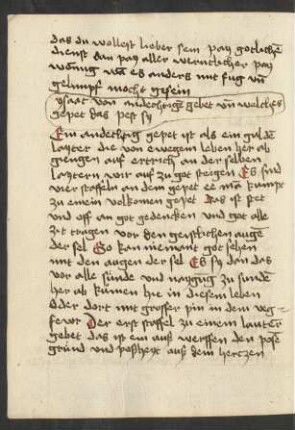 das du wollest lieber sein pay gotlichē
dienst dan pay aller werntlicher pay
wonūg wā es anders mit fug vñ
gelimpf mocht gesein
ysaac von andechtigē gebet vñ welches
gepet das pest sy
Ein andechtig gepet ist als ein guldē
layter die von ewegem leben her ab
giengen auff ertrich an der selben
laytern wir auf zu got steigen Es sind
vier staffeln an dem gepet ee mā kumpt
zu einem volkomen gepet Das ist stet
vnd off an got gedencken vnd got alle
zit tragen vor den geistlichen augē
der sel So kan niemant got sehen
mit den augen der sel Es sy dan das
vor alle sunde vnd naygūg zu sundē
her ab kumen hie in diesem leben
Oder dort mit grosser pin in dem veg-
fewr Der erst staffel zu einem lauter
gebet das ist ein auß werffen den posē
grund vnd poßheyt auß dem herczen